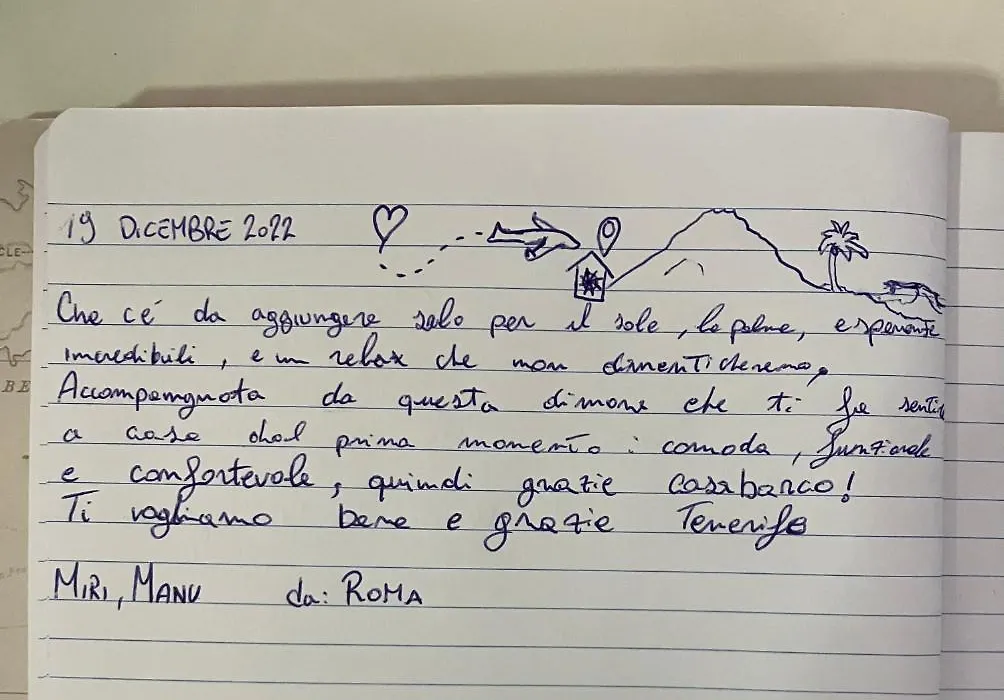 19 DICEMBRE 2022
Che c'é da aggiungere solo per il sole, le palme, esperienze
incredibili, e un relax che non dimenticheremo,
Accompamgnata da questa dimora che ti fa sentire
a casa dal primo momento: comoda, funzionale
e confortevole, quindi grazie casabarco!
Ti vogliamo bene e grazie Tenerife
MIRI, MANU da: ROMA
CLE
BE